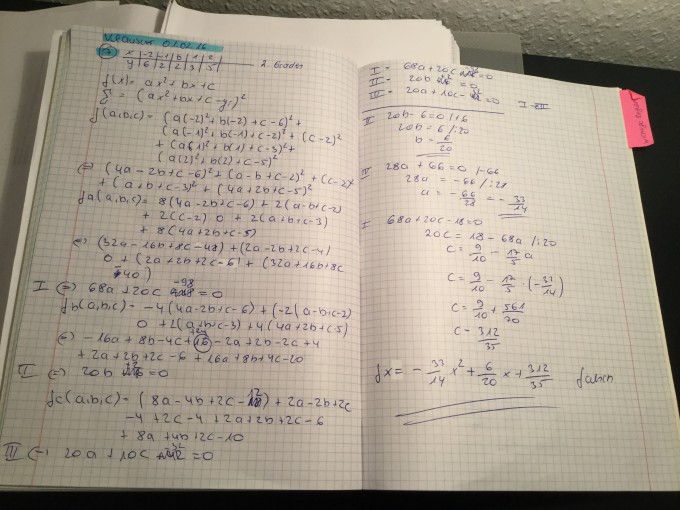 Klausur 01.02.16
17) x | -2 | -1 | 0 | 1 | 2
y | 6 | 2 | 2 | 3 | 5 2. Grades
f(x) = ax² + bx + c
Σ = (ax² + bx + c - yi)²
f(a,b,c) = (a(-2)² + b(-2) + c - 6)² +
(a(-1)² + b(-1) + c - 2)² + (c - 2)²
+ (a(1)² + b(1) + c - 3)² +
(a(2)² + b(2) + c - 5)²
(=) (4a - 2b + c - 6)² + (a - b + c - 2)² + (c - 2)²
+ (a + b + c - 3)² + (4a + 2b + c - 5)²
fa(a,b,c) = 8(4a - 2b + c - 6) + 2(a - b + c - 2)
+ 2(c - 2) · 0 + 2(a + b + c - 3)
+ 8(4a + 2b + c - 5)
(=) (32a - 16b + 8c - 48) + (2a - 2b + 2c - 4)
0 + (2a + 2b + 2c - 6) + (32a + 16b + 8c
- 40)
I (=) 68a + 20c -98 = 0
fb(a,b,c) = -4(4a - 2b + c - 6) + (-2(a - b + c - 2)
0 + 2(a + b + c - 3) + 4(4a + 2b + c - 5)
(=) -16a + 8b - 4c +24 - 2a + 2b - 2c + 4
+ 2a + 2b + 2c - 6 + 16a + 8b + 4c - 20
II (=) 20b = 0
fc(a,b,c) = (8a - 4b + 2c - 12) + 2a - 2b + 2c
- 4 + 2c - 4 + 2a + 2b + 2c - 6
+ 8a + 4b + 2c - 10
III (=) 20a + 10c = 0
I = 68a + 20c = 0
II = 20b = 0
III = 20a + 10c = 0 I - III
II 20b - 6 = 0 / +6
20b = 6 / :20
b = 6/20
III 28a + 66 = 0 / -66
28a = -66 / :28
a = -66/28 = -33/14
I 68a + 20c - 18 = 0
20c = 18 - 68a / :20
c = 9/10 - 17/5 a
c = 9/10 - 17/5 · (-33/14)
c = 9/10 + 561/70
c = 312/35
fx = -33/14 x² + 6/20 x + 312/35 falsch